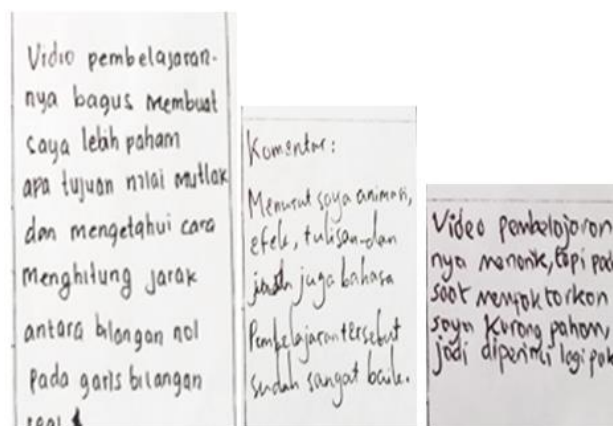 Vidio pembelajaran-
nya bagus membuat
saya lebih paham
apa tujuan nilai mutlak
dan mengetahui cara
menghitung jarak
antara bilangan nol
Pada garis bilangan
real
Komentar:
Menurut saya animasi,
efek, tulisan dan
juga bahasa
Pembelajaran tersebut
sudah sangat baik.
Video pembelajaran
nya menarik, tapi pada
saat
saya kurang paham,
jadi lagi pak